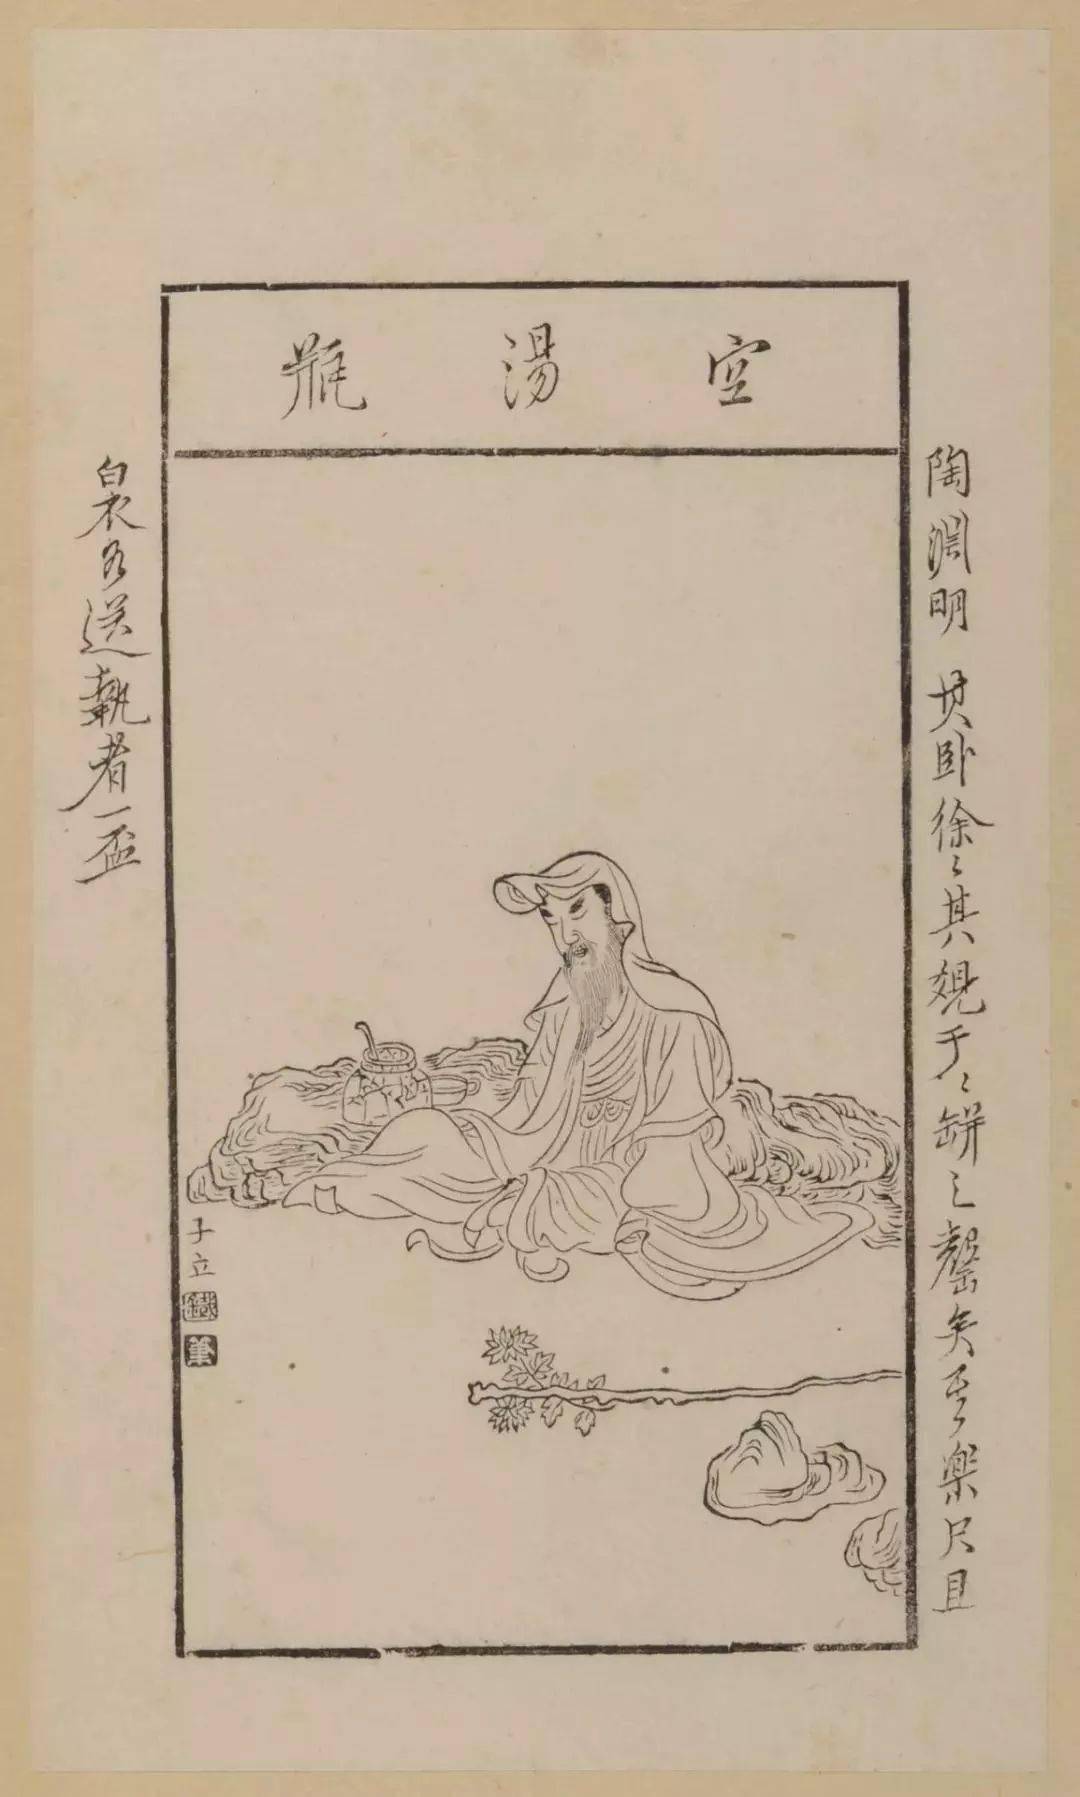 空湯瓶
陶淵明 其卧徐〻其覺于〻缾之罄矣亓樂只且
白衣各送執者一盃
子立
鐵
筆